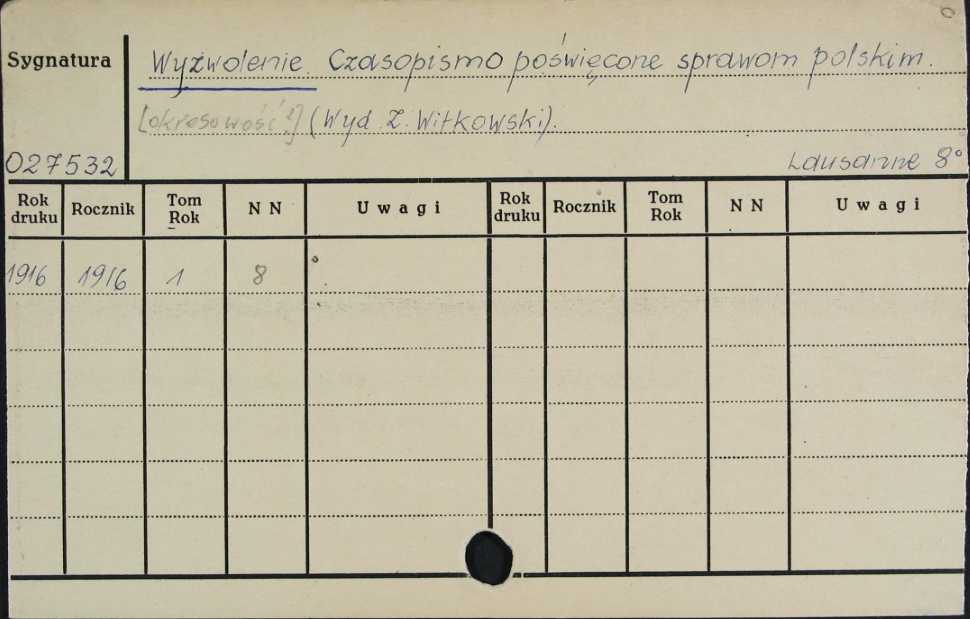 Sygnatura
Wyzwolenie. Czasopismo poświęcone sprawom polskim.
[okresowość?] (Wyd. Z. Witkowski).
027532
Lausanne 8°
Rok druku Rocznik Tom Rok N N Uwagi Rok druku Rocznik Tom Rok N N Uwagi
1916 1916 1 8